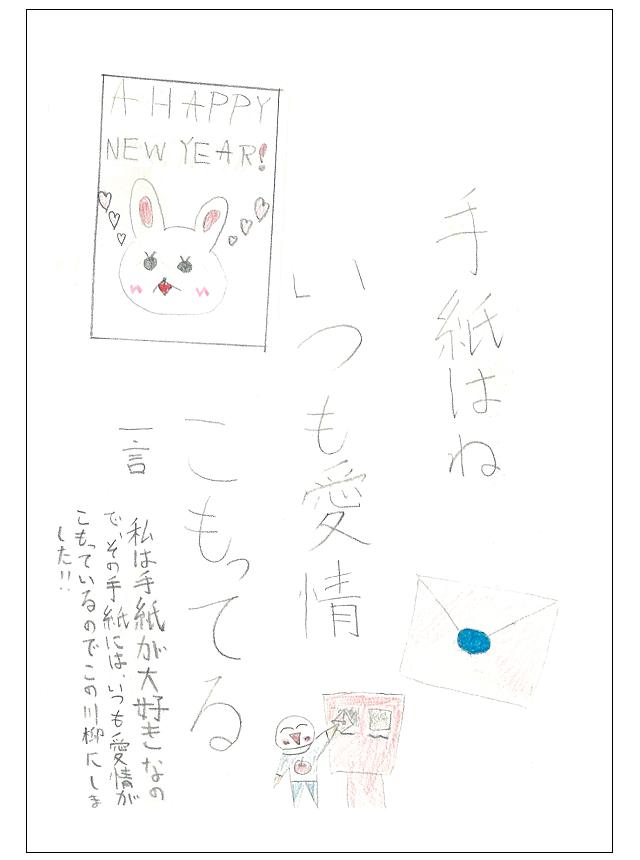 手紙はね
いつも愛情
こもってる
A HAPPY
NEW YEAR!
一言
私は手紙が大好きなの
で、その手紙には、いつも愛情が
こもっているのでこの川柳にしま
した!!